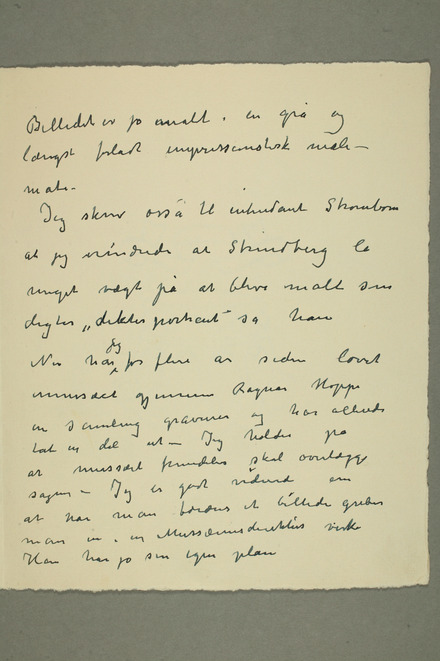 Billedet er jo malt i en grå og
længst forladt impressionistisk male-
mate-
Jeg skrev også til intendant Strömbom
at jeg erindrede at Strindberg la
meget vægt på at blive malt som
digter „dikterportræt" sa han
Nu har jeg for flere år siden lovet
museet gjennem Ragnar Hoppe
en samling gravurer og har allerede
tat en del ut – Jeg holder på
at museet fremdeles skal overlægge
sagen – Jeg er godt vidende om
at når man bærer et billede griber
man in i en Musæumsdirektørs verk
Han har jo sin egen plan